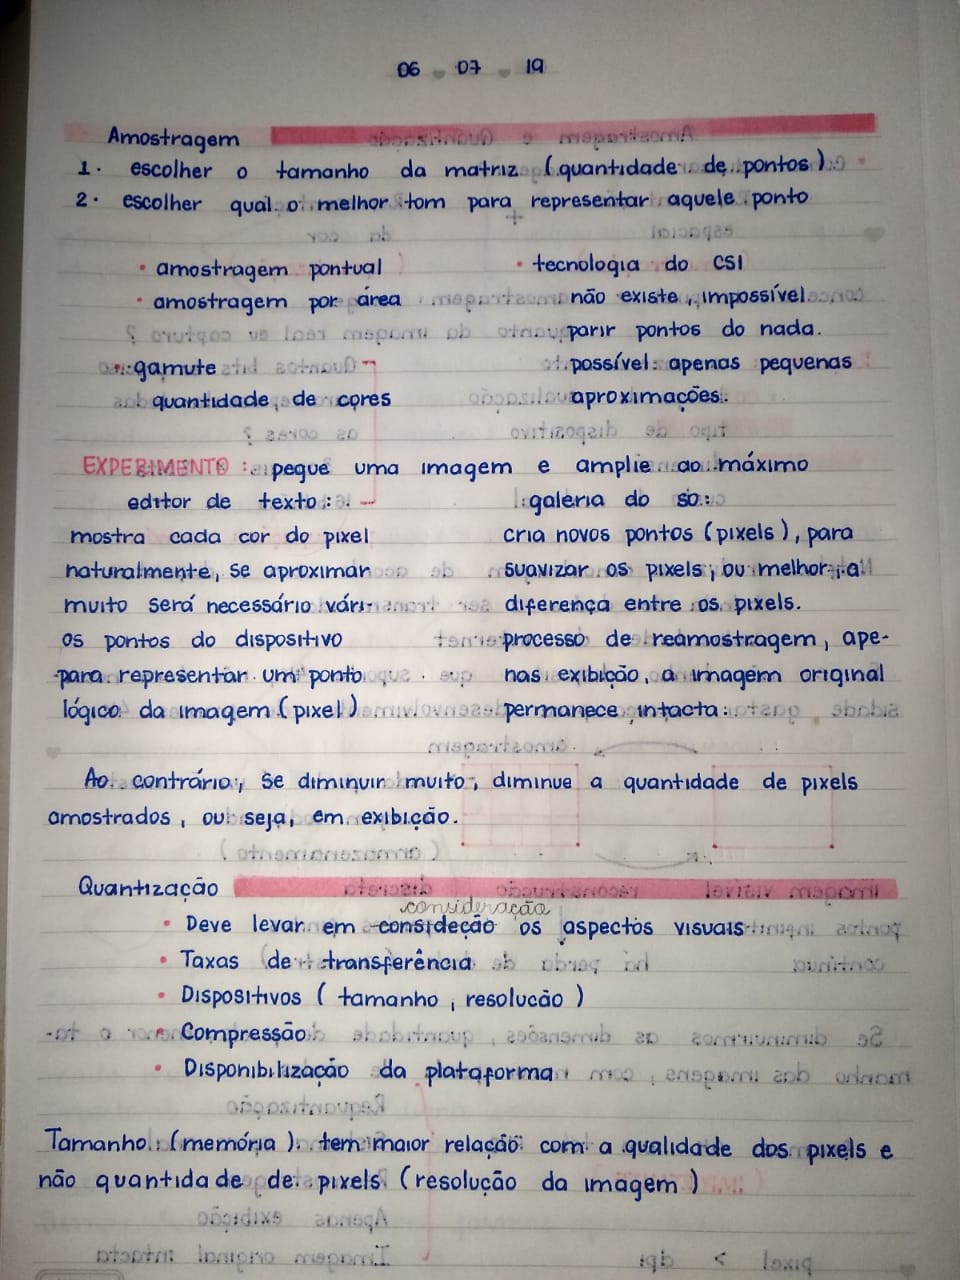 06 07 19
Amostragem
1. escolher o tamanho da matriz (quantidade de pontos)
2. escolher qual o melhor tom para representar aquele ponto
• amostragem pontual
• amostragem por área
• gamute
quantidade de cores
• tecnologia do CSI
não existe, impossível
parir pontos do nada.
possível apenas pequenas
aproximações.
EXPERIMENTO: pegue uma imagem e amplie ao máximo
editor de texto:
mostra cada cor do pixel
naturalmente, se aproximar
muito será necessário vári-
os pontos do dispositivo
para representar um ponto
lógico da imagem (pixel)
galeria do so:
cria novos pontos (pixels), para
suavizar os pixels, ou melhor, a
diferença entre os pixels.
processo de reamostragem, ape-
nas exibição, a imagem original
permanece intacta.
Ao contrário, se diminuir muito, diminue a quantidade de pixels
amostrados, ou seja, em exibição.
Quantização
consideração
• Deve levar em consideção os aspectos visuais
• Taxas de transferência
• Dispositivos (tamanho, resolucão)
• Compressão
• Disponibilização da plataforma
Tamanho (memória) tem maior relação com a qualidade dos pixels e
não quantidade de pixels (resolução da imagem)